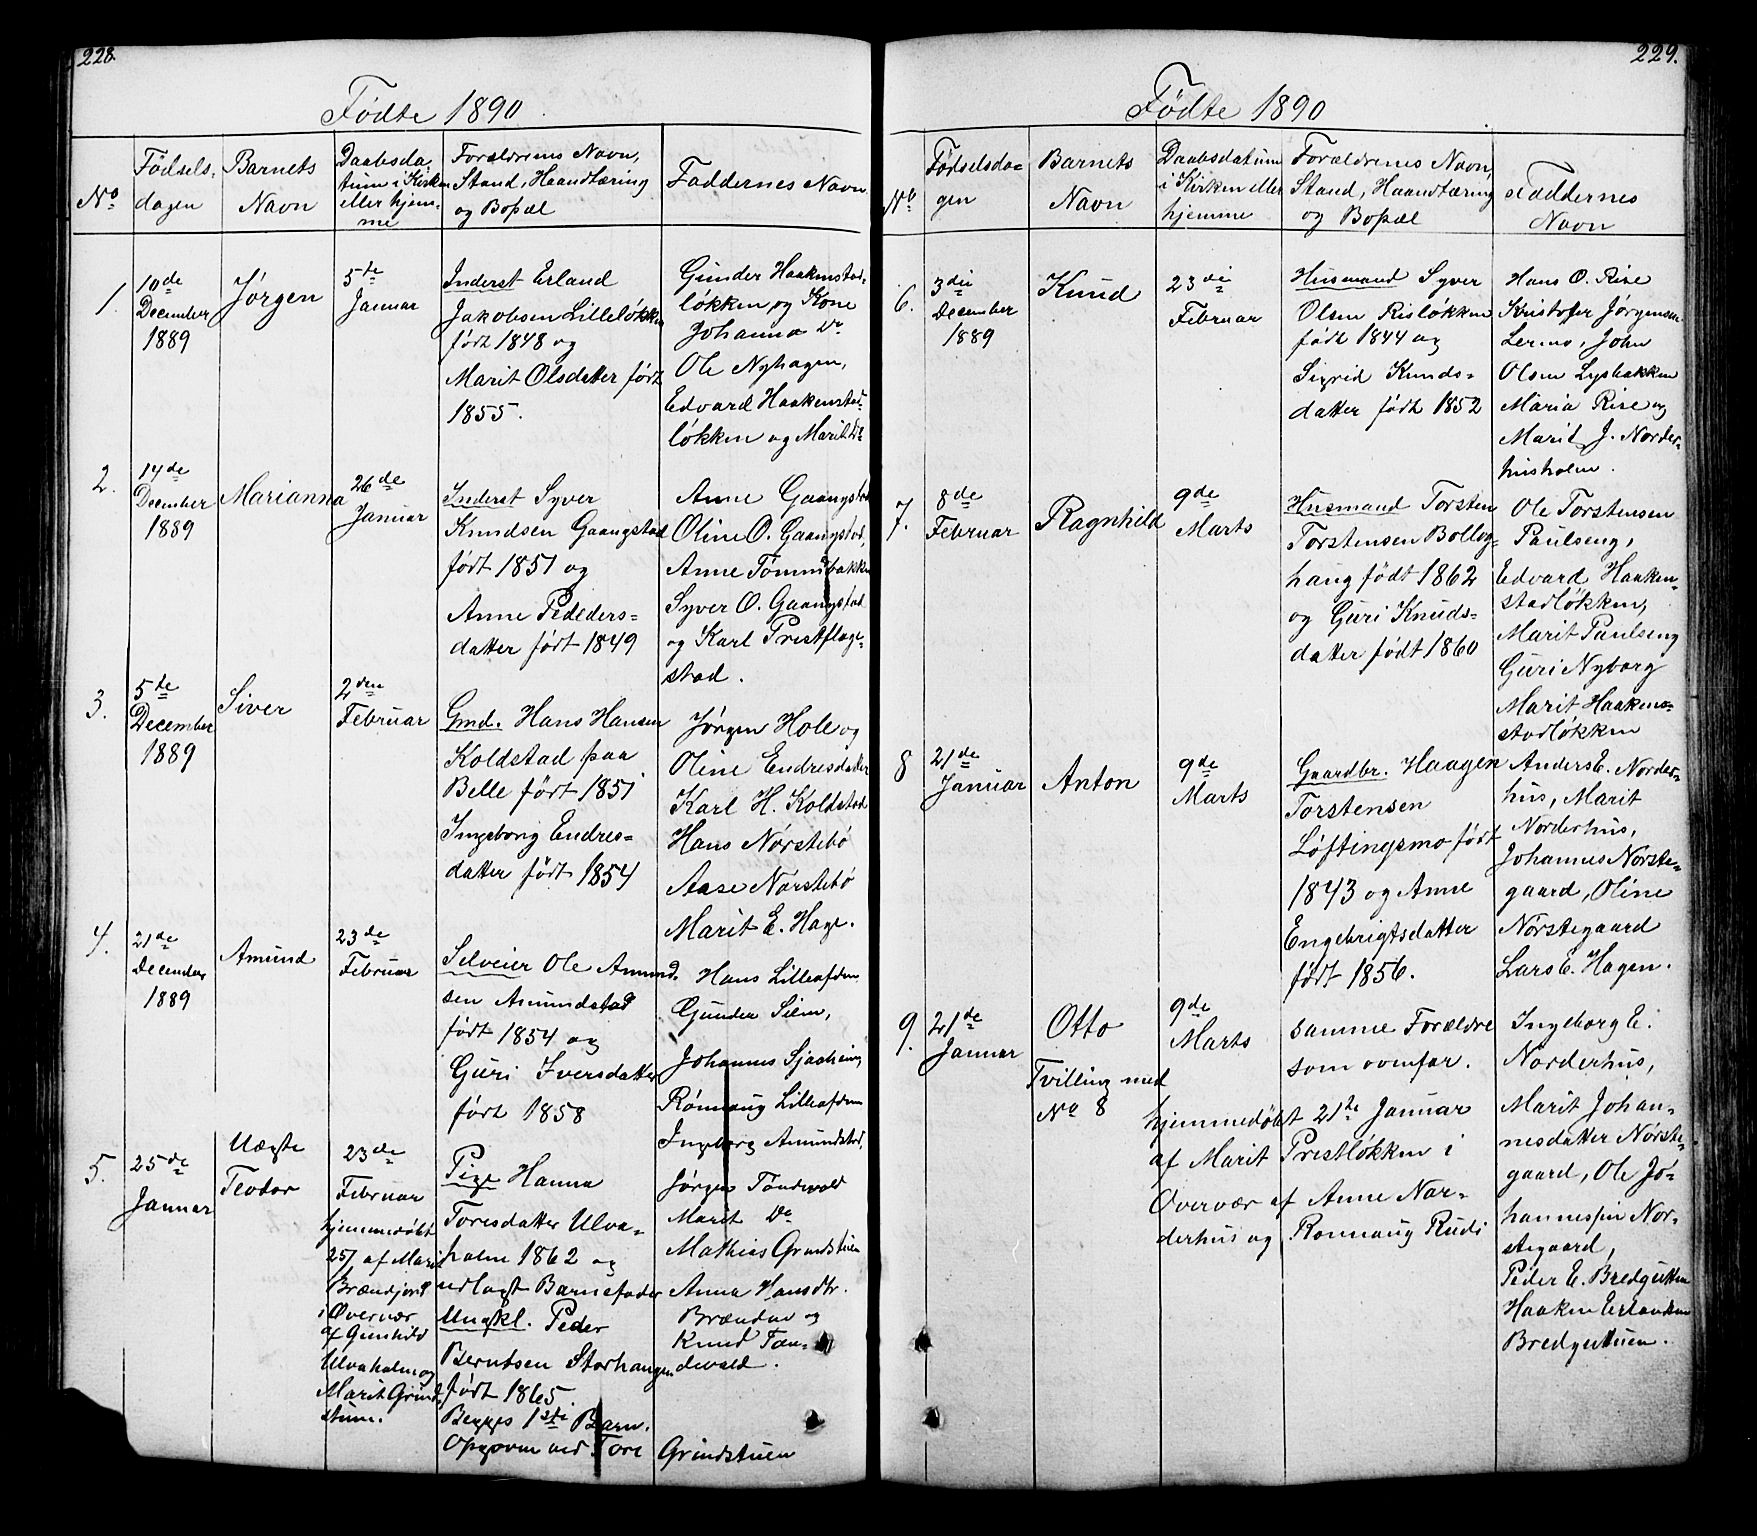 228.
Fødte 1890
No
Fødsels-
dagen
Barnets
Navn
Daabsda-
tum i Kirken
eller hjem-
me
Forældrenes Navn,
Stand, Haandtæring
og Bopæl
Faddernes Navn
1.
10de
December
1889
Jørgen
5te
Januar
Inderst Erland
Jakobsen Lilleløkken
født 1848 og
Marit Olsdatter født
1855.
Gunder Haakenstad-
løkken og Kone
Johanna Do
Ole Nyhagen,
Edvard Haakenstad-
løkken og Marit Do
2.
14de
December
1889
Marianna
26de
Januar
Inderst Syver
Knudsen Gaangstad
født 1851 og
Anne Pededers-
datter født 1849
Anne Gaangstad
Oline O. Gaangstad,
Anne Tømmibakken
Syver O. Gaangstad
og Karl Prestflage-
stad.
3.
5te
December
1889
Siver
2den
Februar
Gmd. Hans Hansen
Koldstad paa
Belle født 1851
Ingeborg Endres-
datter født 1854
Jørgen Hole og
Oline Endresdatter
Karl H. Koldstad
Hans Nørstebø
Aase Nørstebø
Marit E. Hage.
4.
21de
December
1889
Amund
23de
Februar
Selveier Ole Amund-
sen Amundstad
født 1854 og
Guri Iversdatter
født 1858
Hans
Gunder
Johannes
Rønnaug
Ingeborg Amundstad.
5.
25de
Januar
Uægte
Teodor
23de
Februar
hjemmedøbt
25/1 af Mari
Brændjord
i Overvær
af Gunhild
Ulvaholm og
Marit Grind-
stuen.
Pige Hanna
Toresdatter Ulva-
holm 1862 og
udlagt Barnefader
Ungkl. Peder
Berntsen Storhaugen
født 1865.
Begges 1ste Barn.
Opgoven ved Tore Grindstuen
Jørgen Tandevold
Marit Do
Mathias Grindstuen
Anna Hansdtr.
Brænden og
Knud Tan-
devold.
229.
Fødte 1890
No.
Fødselsda-
gen
Barnets
Navn
Daabsdatum
i Kirken eller
hjemme
Forældrenes Navn,
Stand, Haandtæring
og Bopæl
Faddernes
Navn
6.
3die
December
1889
Knud
23di
Februar
Husmand Syver
Olsen Risløkken
født 1844 og
Sigrid Knuds-
datter født 1852
Hans O. Rise
Kristofer Jørgensen
John
Olsen Lysbakken
Maria Rise og
Marit J. Norder-
husholm.
7.
8de
Februar
Ragnhild
9de
Marts
Husmand Torsten
Torstensen Bolleg-
haug født 1862
og Guri Knuds-
datter født 1860
Ole Torstensen
Paulseng,
Edvard Haaken-
stadløkken,
Marit Paulseng
Guri Nyborg
Marit Haaken-
stadløkken
8
21de
Januar
Anton
9de
Marts
Gaardbr. Haagen
Torstensen
Løftingsmo født
1843 og Anne
Engebrigtsdatter
født 1856.
Anders E. Norder-
hus, Marit
Norderhus,
Johannes Nørste-
gaard, Oline
Nørstegaard
Lars E. Hagen.
9.
21de
Januar
Otto
Tvilling med
No 8
9de
Marts
samme Forældre
som ovenfor.
hjemmedøbt 21de Januar
af Marit Prestløkken i
Overvær af Anne Nor-
derhus og Rønnaug Rudi
Ingeborg E.
Norderhus,
Marit Johan-
nesdatter Nørste-
gaard, Ole Jo-
hannesen Nør-
stegaard,
Peder E. Bredgutuen
Haaken Erlandsen
Bredgutuen.